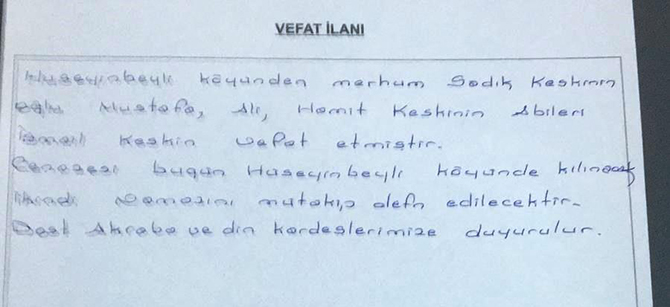 VEFAT İLANI
Huseyinbeyli köyünden merhum Sadık Keskinin
oğlu Mustafa, Ali, Hamit Keskinin Abileri
İsmail Keskin vefat etmiştir.
Cenazesi bugün Huseyinbeyli köyünde kılınacak
ikindi Namazını mutakip defn edilecektir.
Dost Akraba ve din kardeşlerimize duyurulur.